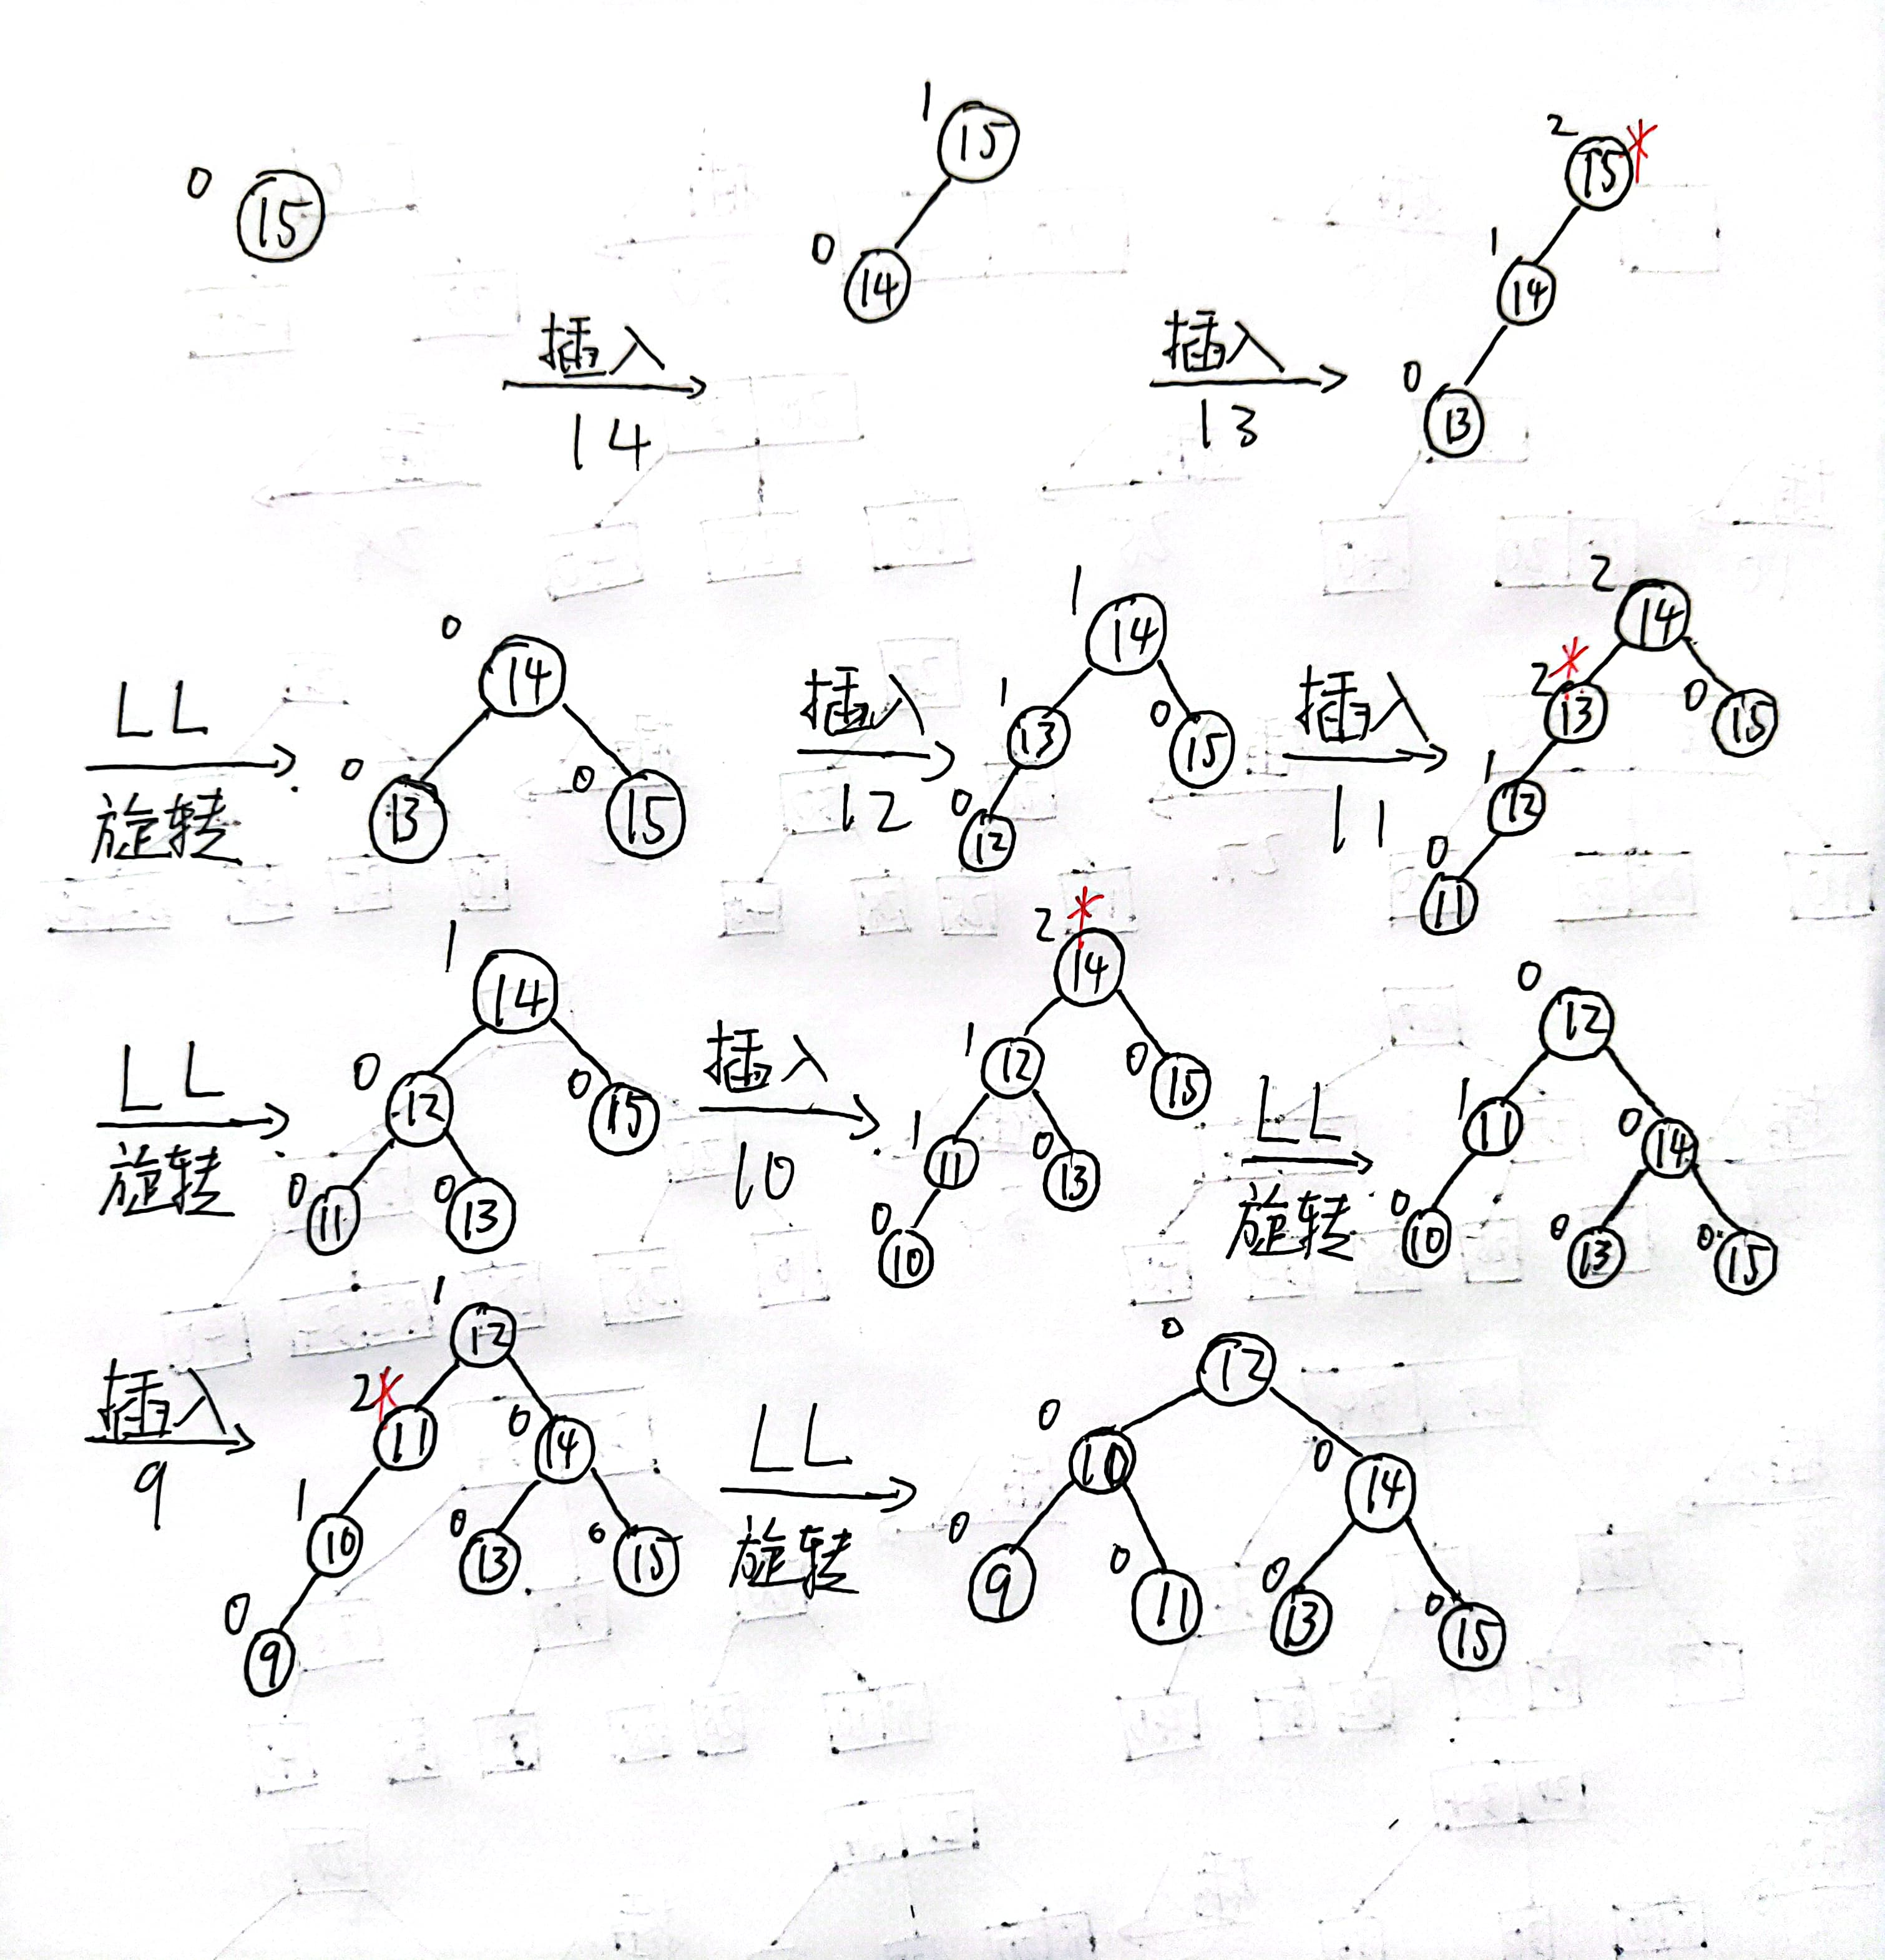 0 15
1 15
0 14
2 15 *
1 14
0 13
插入
14
插入
13
LL
旋转
0 14
0 13 0 15
插入
12
1 14
1 13 0 15
0 12
插入
11
2 14
2 * 13 0 15
1 12
0 11
LL
旋转
1 14
0 12 0 15
0 11 0 13
插入
10
2 * 14
1 12 0 15
1 11 0 13
0 10
LL
旋转
0 12
1 11 0 14
0 10 0 13 0 15
插入
9
1 12
2 * 11 0 14
1 10 0 13 0 15
0 9
LL
旋转
0 12
0 10 0 14
0 9 0 11 0 13 0 15